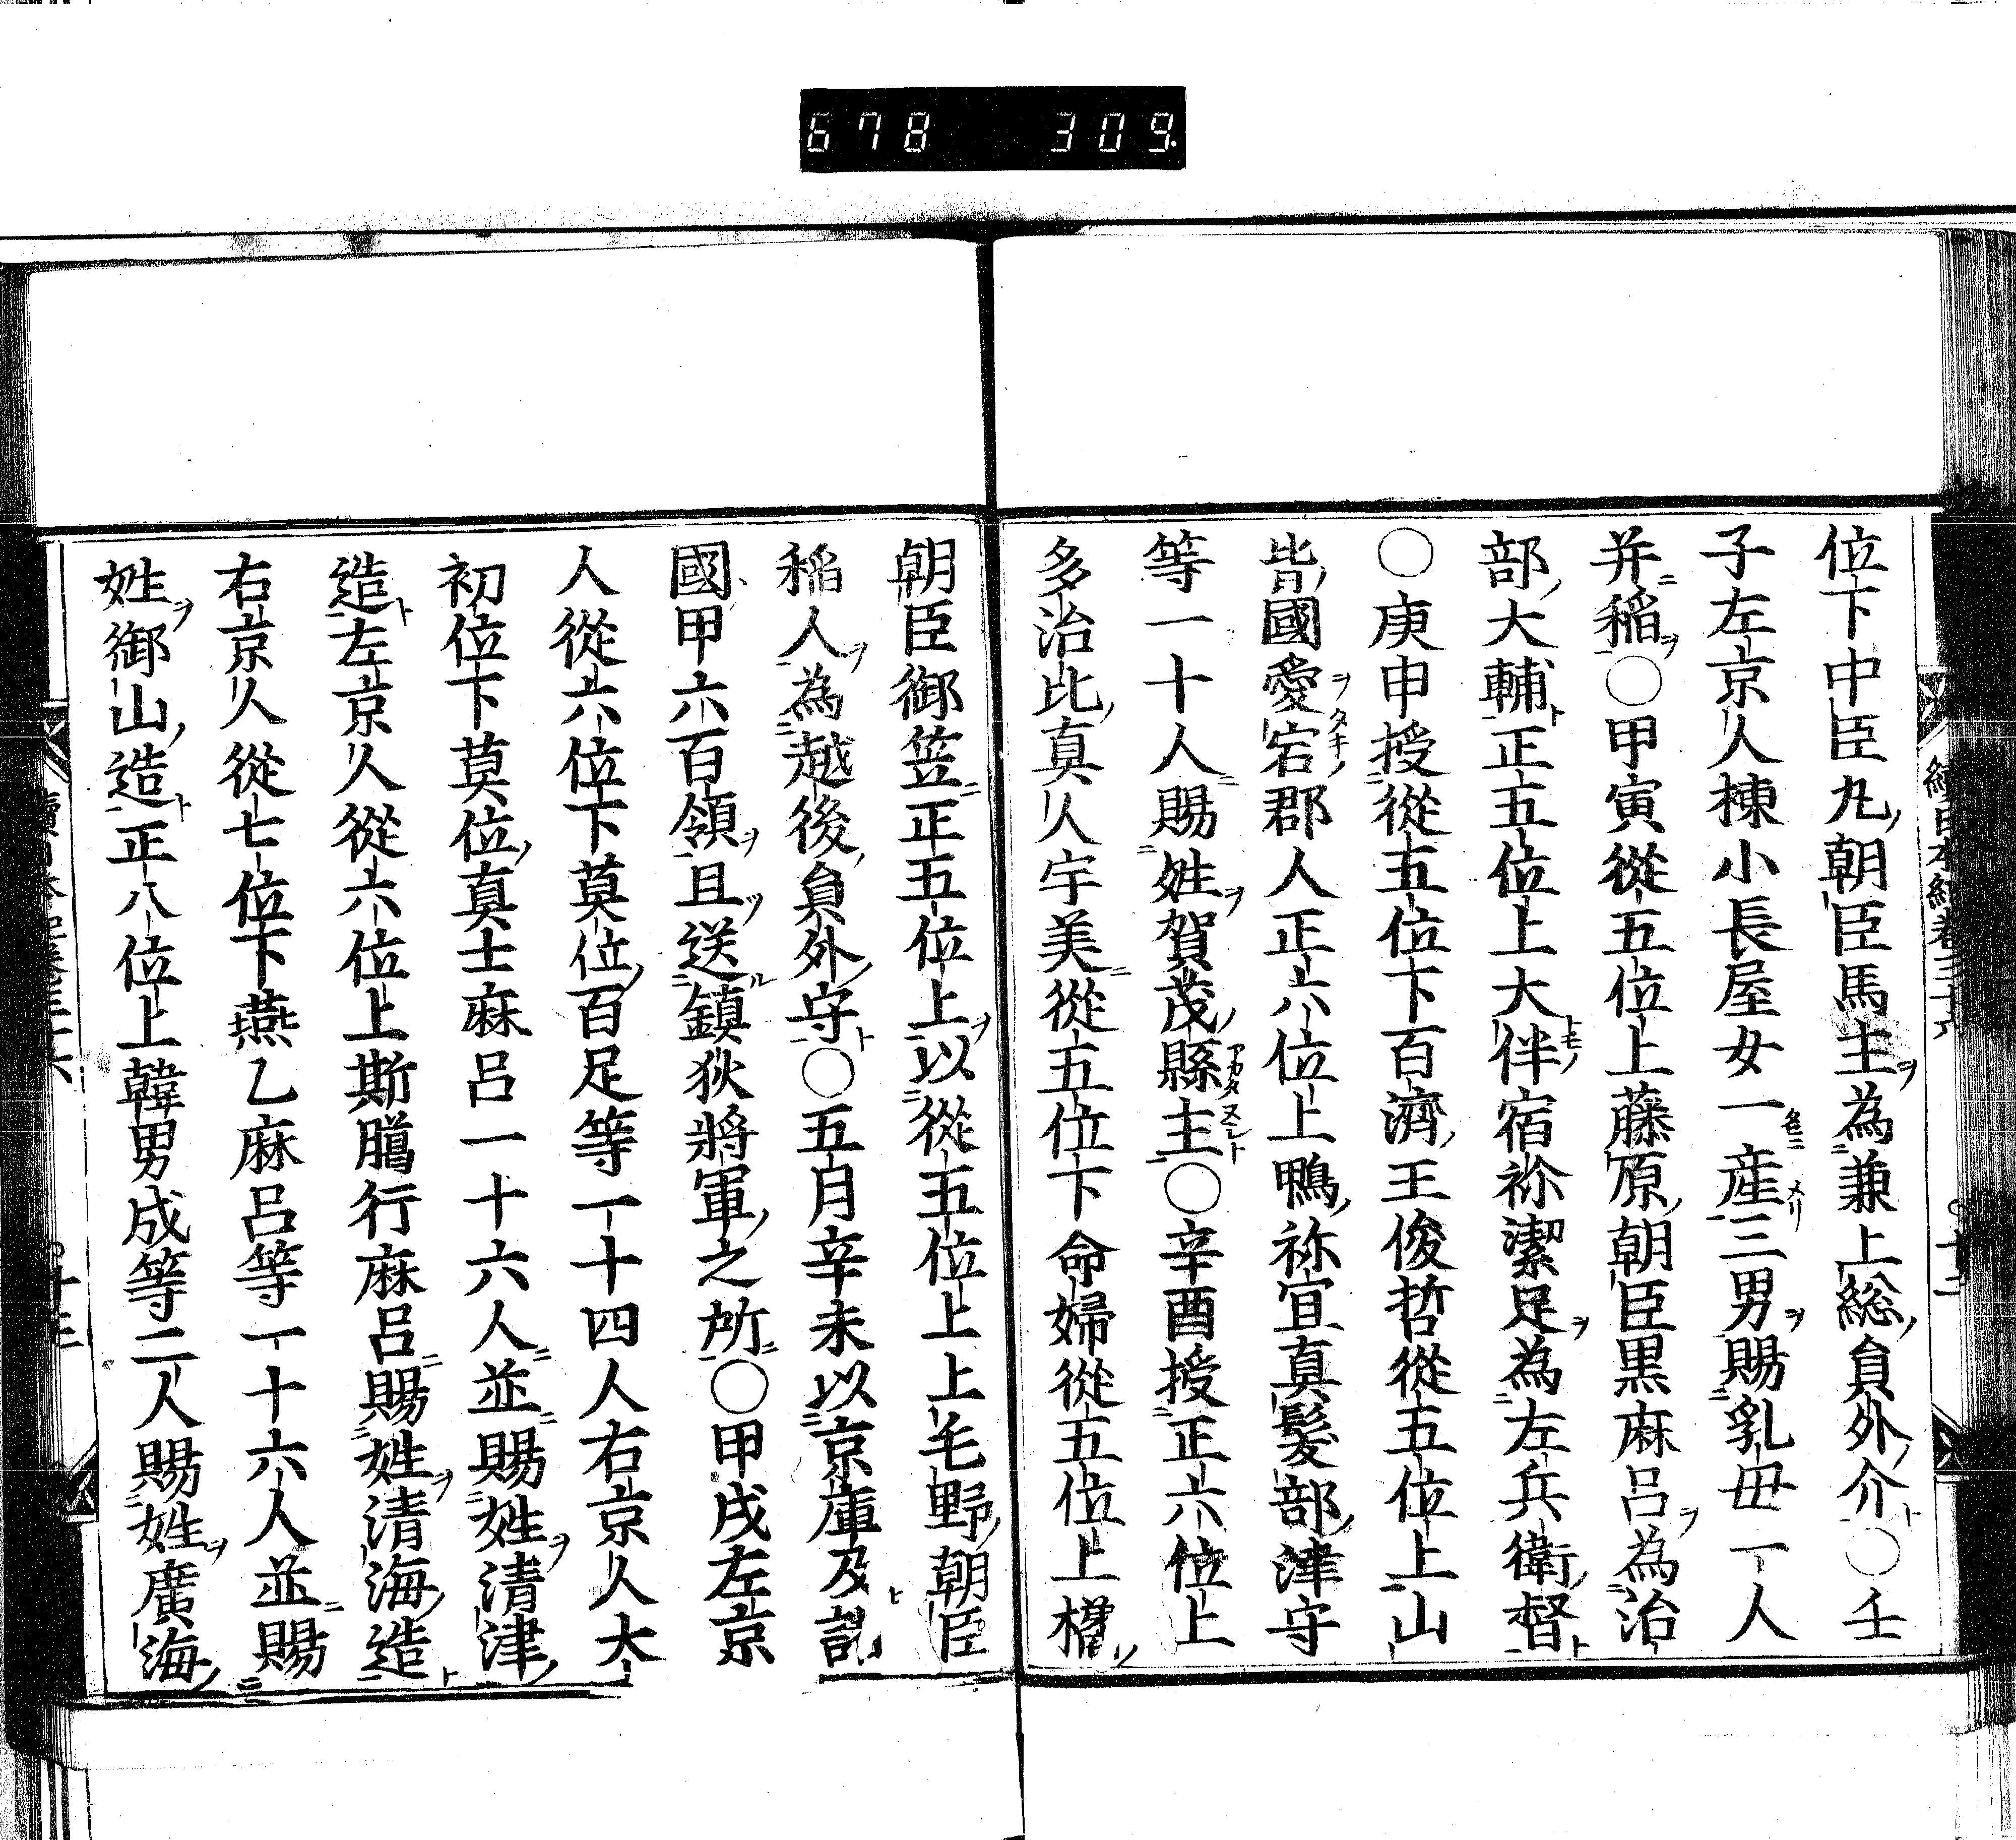 678 309
位下中臣丸朝臣馬主為兼上総員外介○壬
子左京人棟小長屋女一産三男賜乳母一人
并稲○甲寅從五位上藤原朝臣黒麻呂為治
部大輔正五位上大伴宿祢潔足為左兵衛督
○庚申授從五位下百濟王俊哲從五位上山
背國愛宕郡人正六位上鴨祢宜真髪部津守
等一十人賜姓賀茂縣主○辛酉授正六位上
多治比真人宇美從五位下命婦從五位上橘
朝臣御笠正五位上以從五位上上毛野朝臣
稲人為越後員外守○五月辛未以京庫及諸
國甲六百領且送鎮狄將軍之所○甲戌左京
人從六位下莫位百足等一十四人右京人大
初位下莫位真士麻呂一十六人並賜姓清津
造左京人從六位上斯﨟行麻呂賜姓清海造
右京人從七位下燕乙麻呂等一十六人並賜
姓御山造正八位上韓男成等二人賜姓廣海